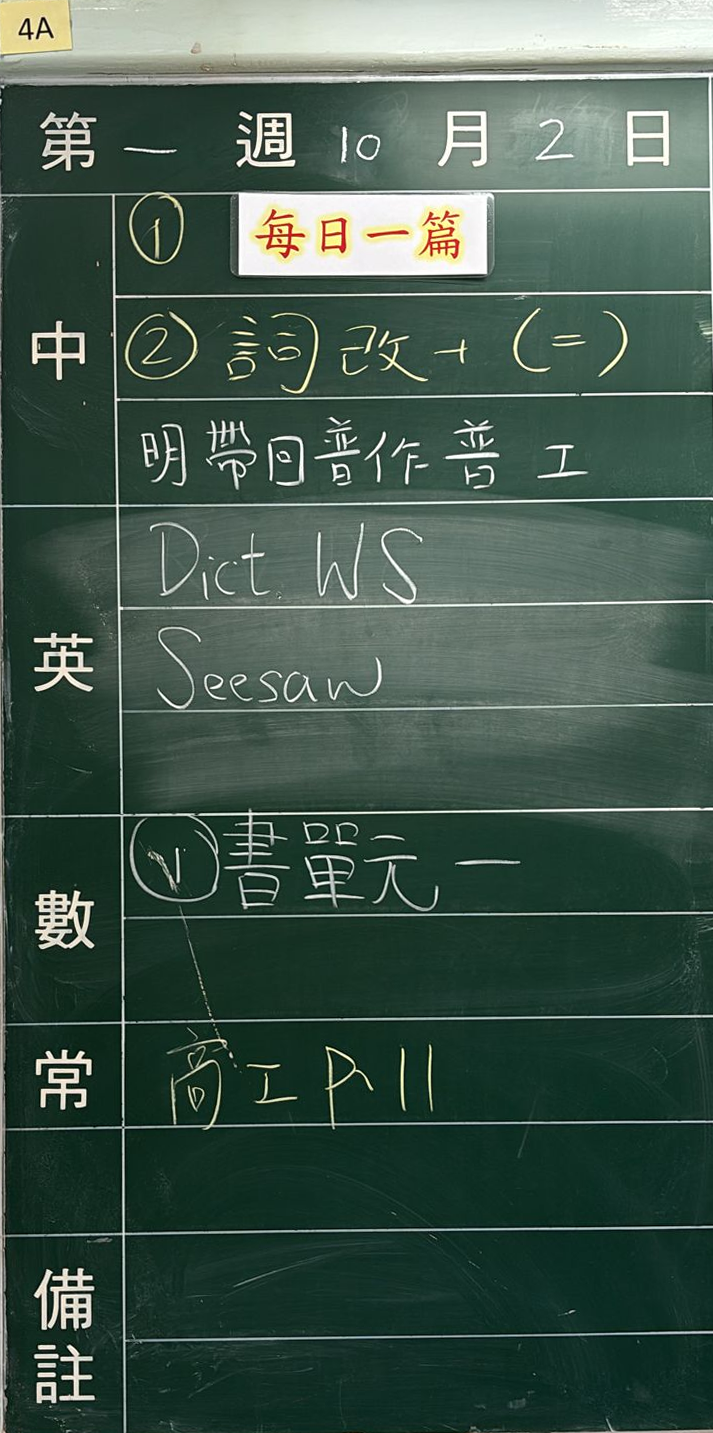 4A
第一週10月2日
中
① 每日一篇
② 詞改+(二)
明帶回普作普工
英
Dict. WS
Seesaw
數
書單元一
常
商工P.11
備註